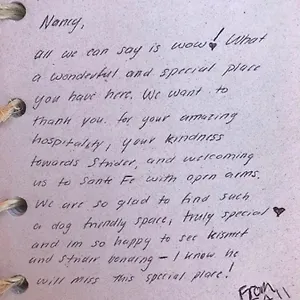 Nancy,
all we can say is wow! What
a wonderful and special place
you have here. We want to
thank you for your amazing
hospitality, your kindness
towards Strider, and welcoming
us to Sante Fe with open arms.
We are so glad to find such
a dog friendly space, truly special ♥
and im so happy to see kismet
and strider bonding - I know he
will miss this special place!
Fran